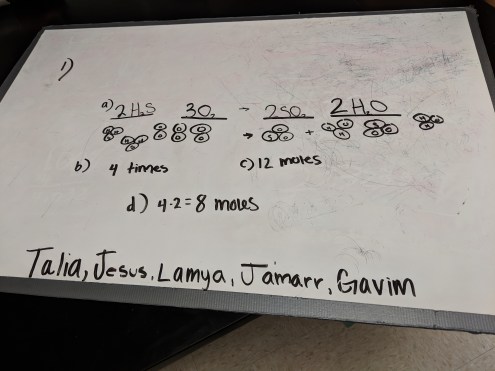 1)
a) 2H₂S 3O₂ → 2SO₂ 2H₂O
→ +
b) 4 times c) 12 moles
d) 4·2=8 moles
Talia, Jesus, Lamya, Jamarr, Gavim